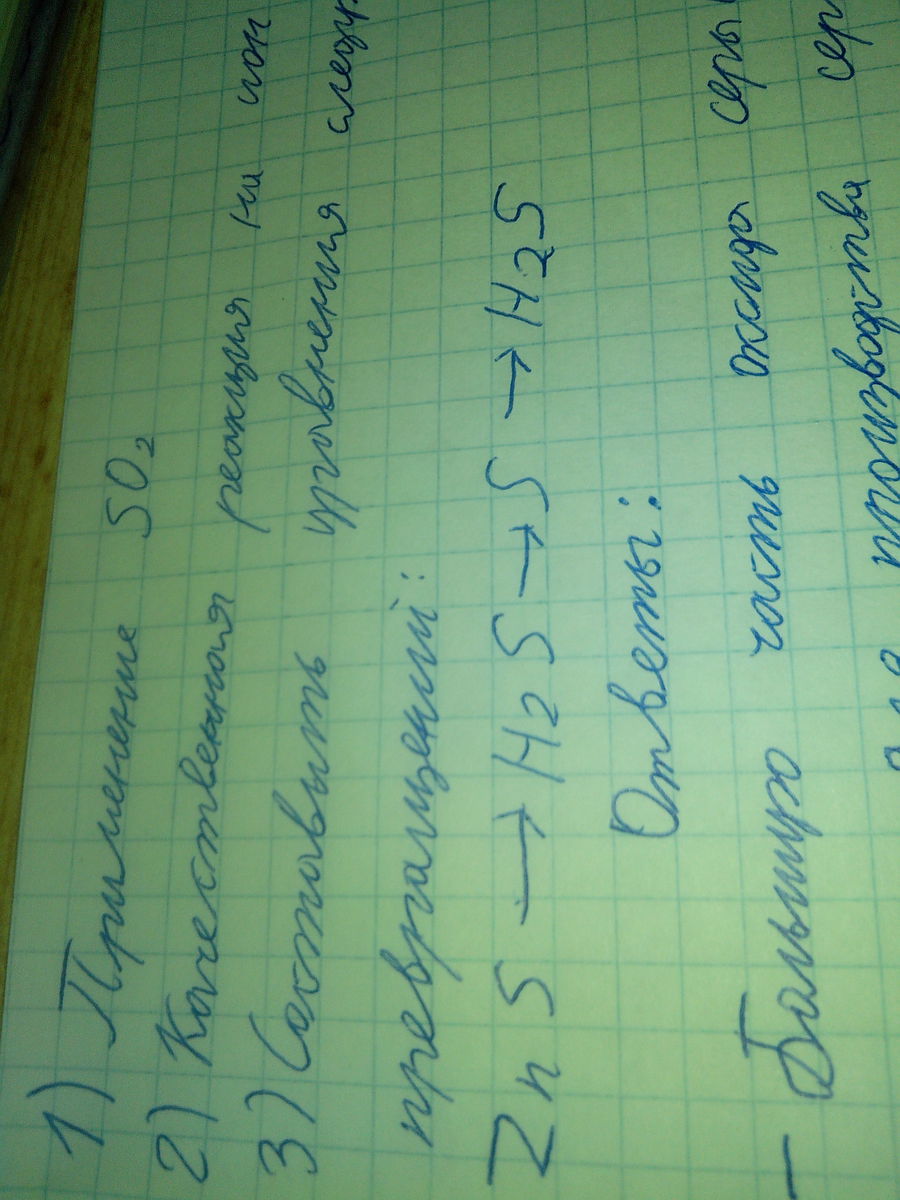 1) Применение SO2
2) Качественная реакция на ион
3) Составить уравнения следу
превращений:
ZnS → H2S → S → H2S
Ответы:
- Большую часть оксида серы
производства сер